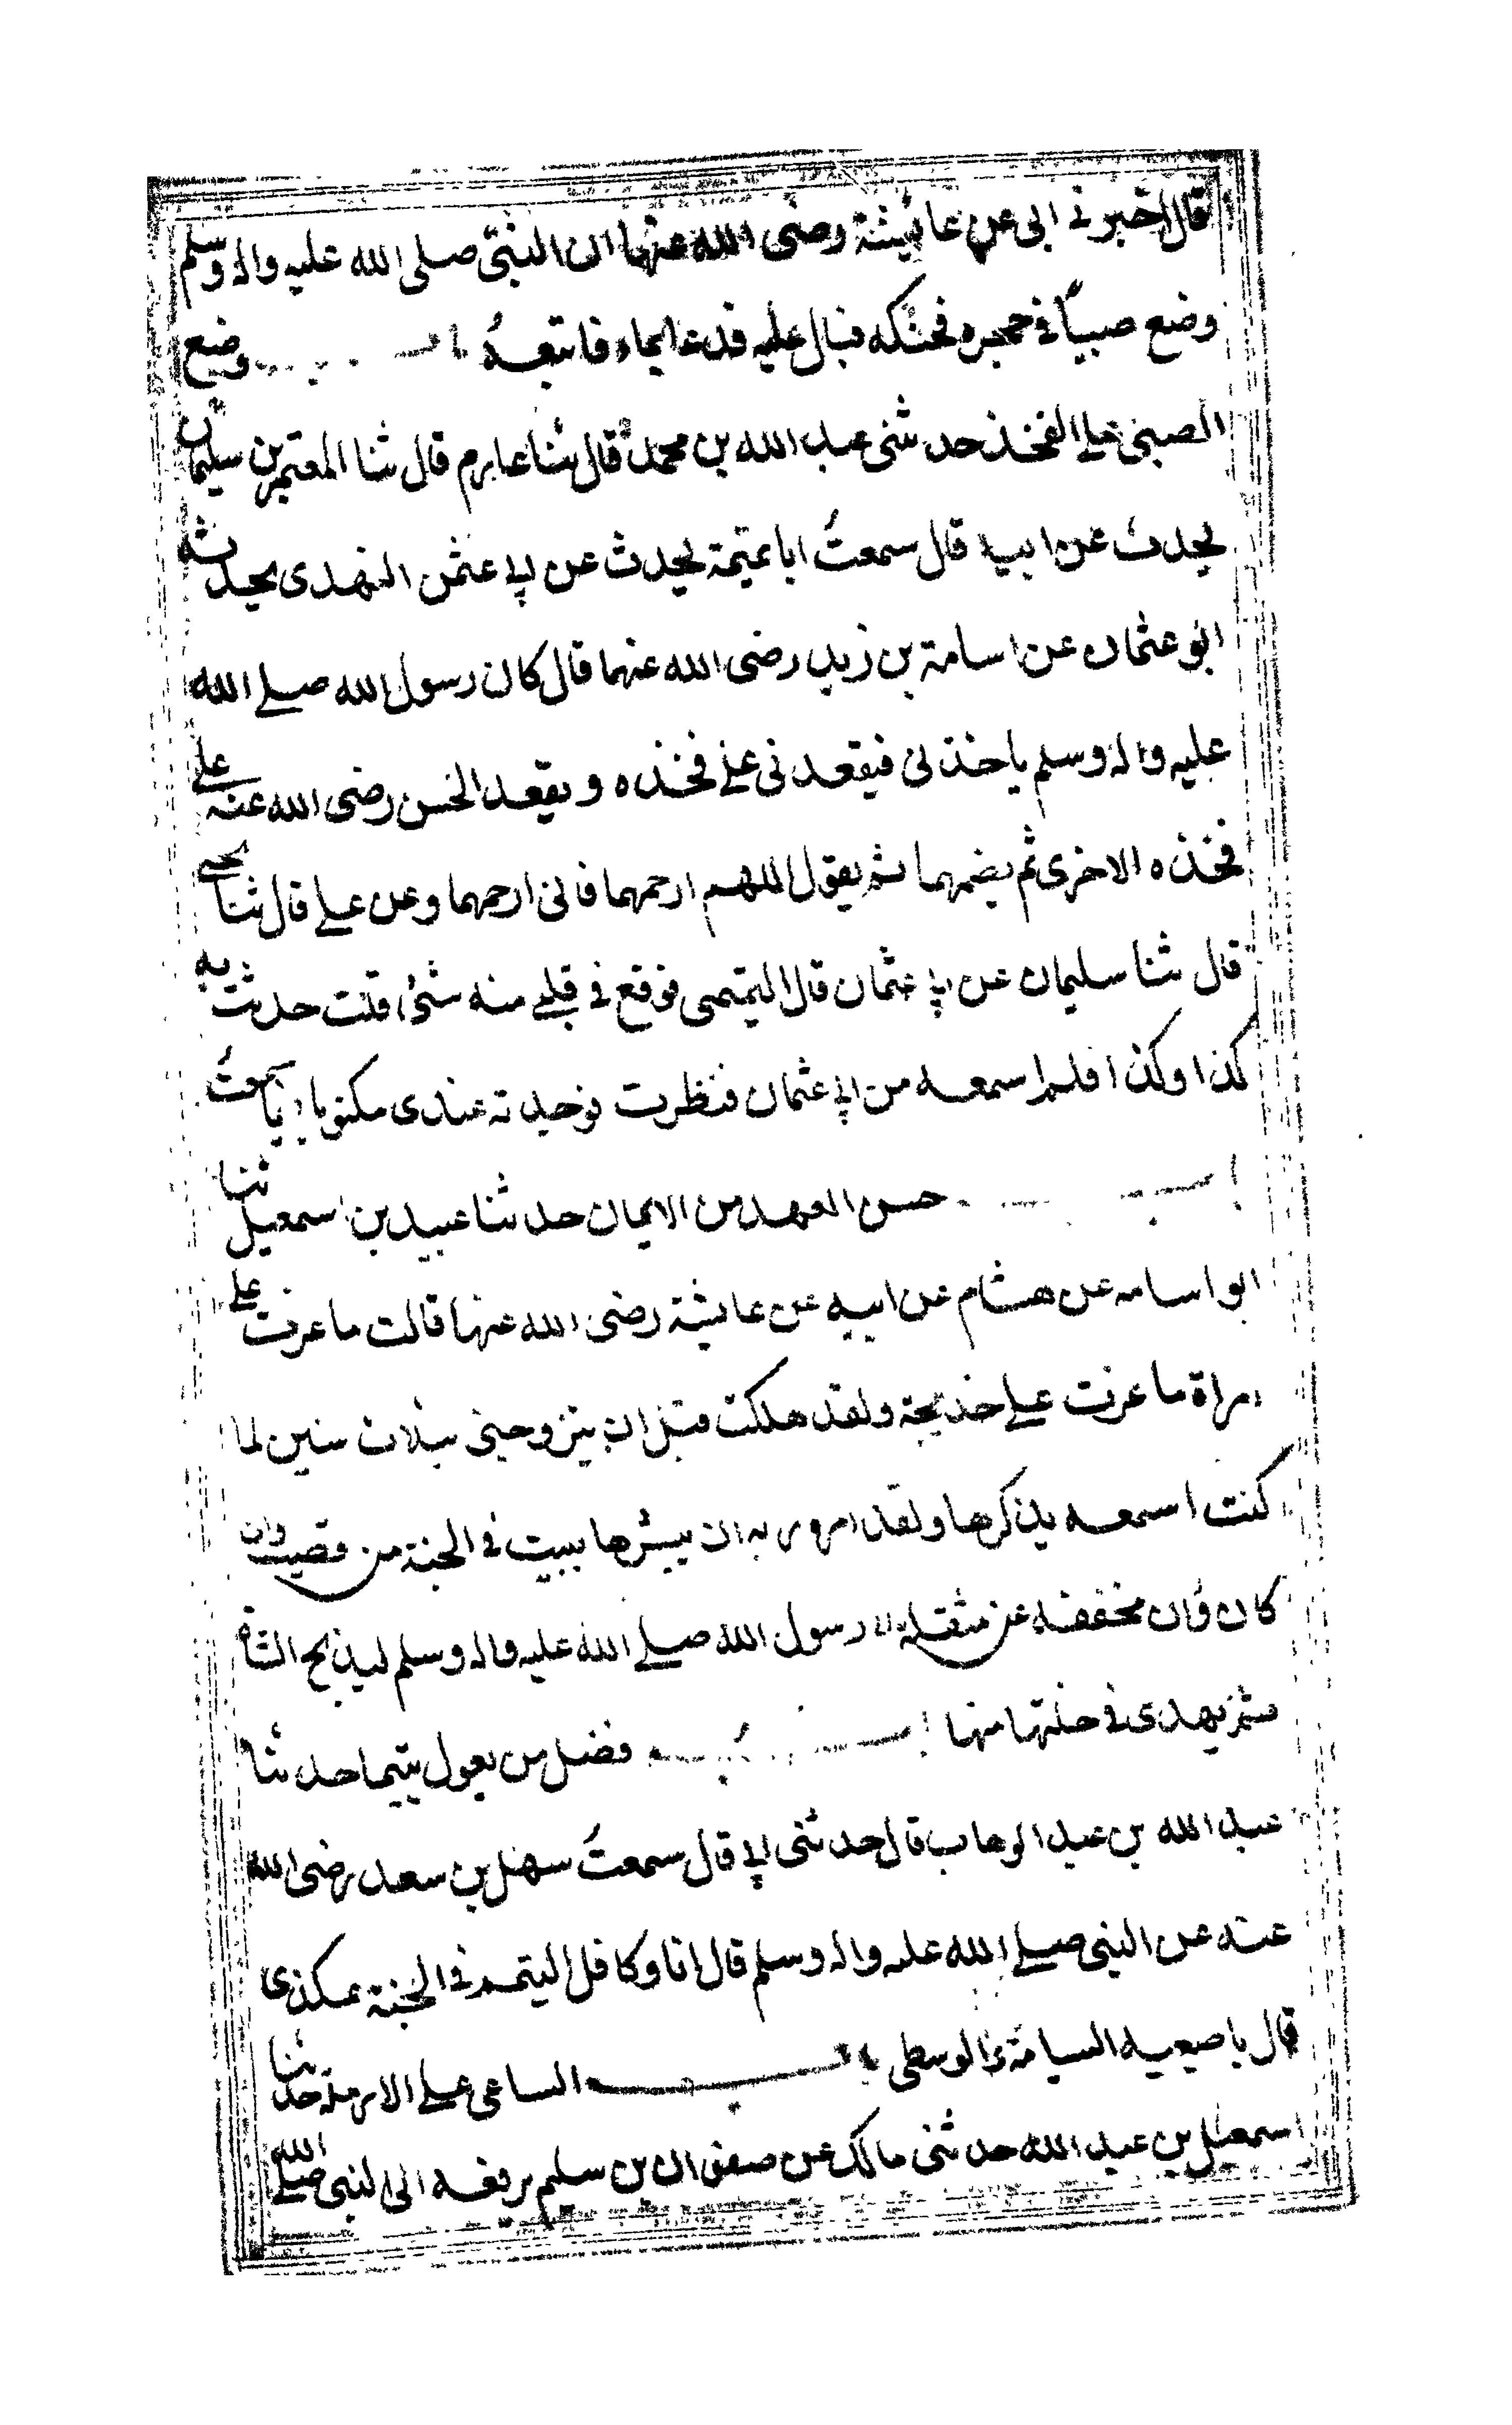 قال اخبرني ابي عن عائيشة رضى الله عنها ان النبي صلى الله عليه واله وسلم
وضع صبيا في حجره فحنكه فبال عليه فدعا بماء فاتبعه باب وضع
الصبي على الفخذ حدثنى عبد الله بن محمد قال ثنا عارم قال ثنا المعتمر بن سليمان
يحدث عن ابيه قال سمعت ابا تميمة يحدث عن ابي عثمن النهدى يحدثه
ابو عثمان عن اسامة بن زيد رضى الله عنهما قال كان رسول الله صلے الله
عليه واله وسلم ياخذنى فيقعدنى على فخذه ويقعد الحسن رضى الله عنه على
فخذه الاخرى ثم يضمهما ثم يقول اللهم ارحمهما فانى ارحمهما وعن على قال ثنا يحيى
قال ثنا سليمان عن ابي عثمان قال التيمى فوقع في قلبے منه شئ قلت حدثت به
كذا وكذا فلم اسمعه من ابي عثمان فنظرت فوجدته عندى مكتوبا فيما سمعت
باب حسن العهد من الايمان حدثنا عبيد بن اسمعيل ثنا
ابو اسامه عن هشام عن ابيه عن عايشة رضى الله عنها قالت ما غرت على
امراة ما غرت على خديجة ولقد هلكت قبل ان يتزوجنى بثلاث سنين لما
كنت اسمعه يذكرها ولقد امره ربه ان يبشرها ببيت في الجنة من قصب وان
كان وان مخففه عن مثقله رسول الله صلے الله عليه واله وسلم ليذبح الشاة
ثم يهدى في خلتها منها باب فضل من يعول يتيما حدثنا
عبد الله بن عبد الوهاب قال حدثنى ابي قال سمعت سهل بن سعد رضى الله
عنه عن النبي صلے الله عليه واله وسلم قال انا وكافل اليتيم في الجنة هكذى
قال باصبعيه السبابة والوسطى باب الساعى على الارملة حدثنا
اسمعيل بن عبد الله حدثنى مالك عن صفوان بن سليم يرفعه الى النبي صلے الله